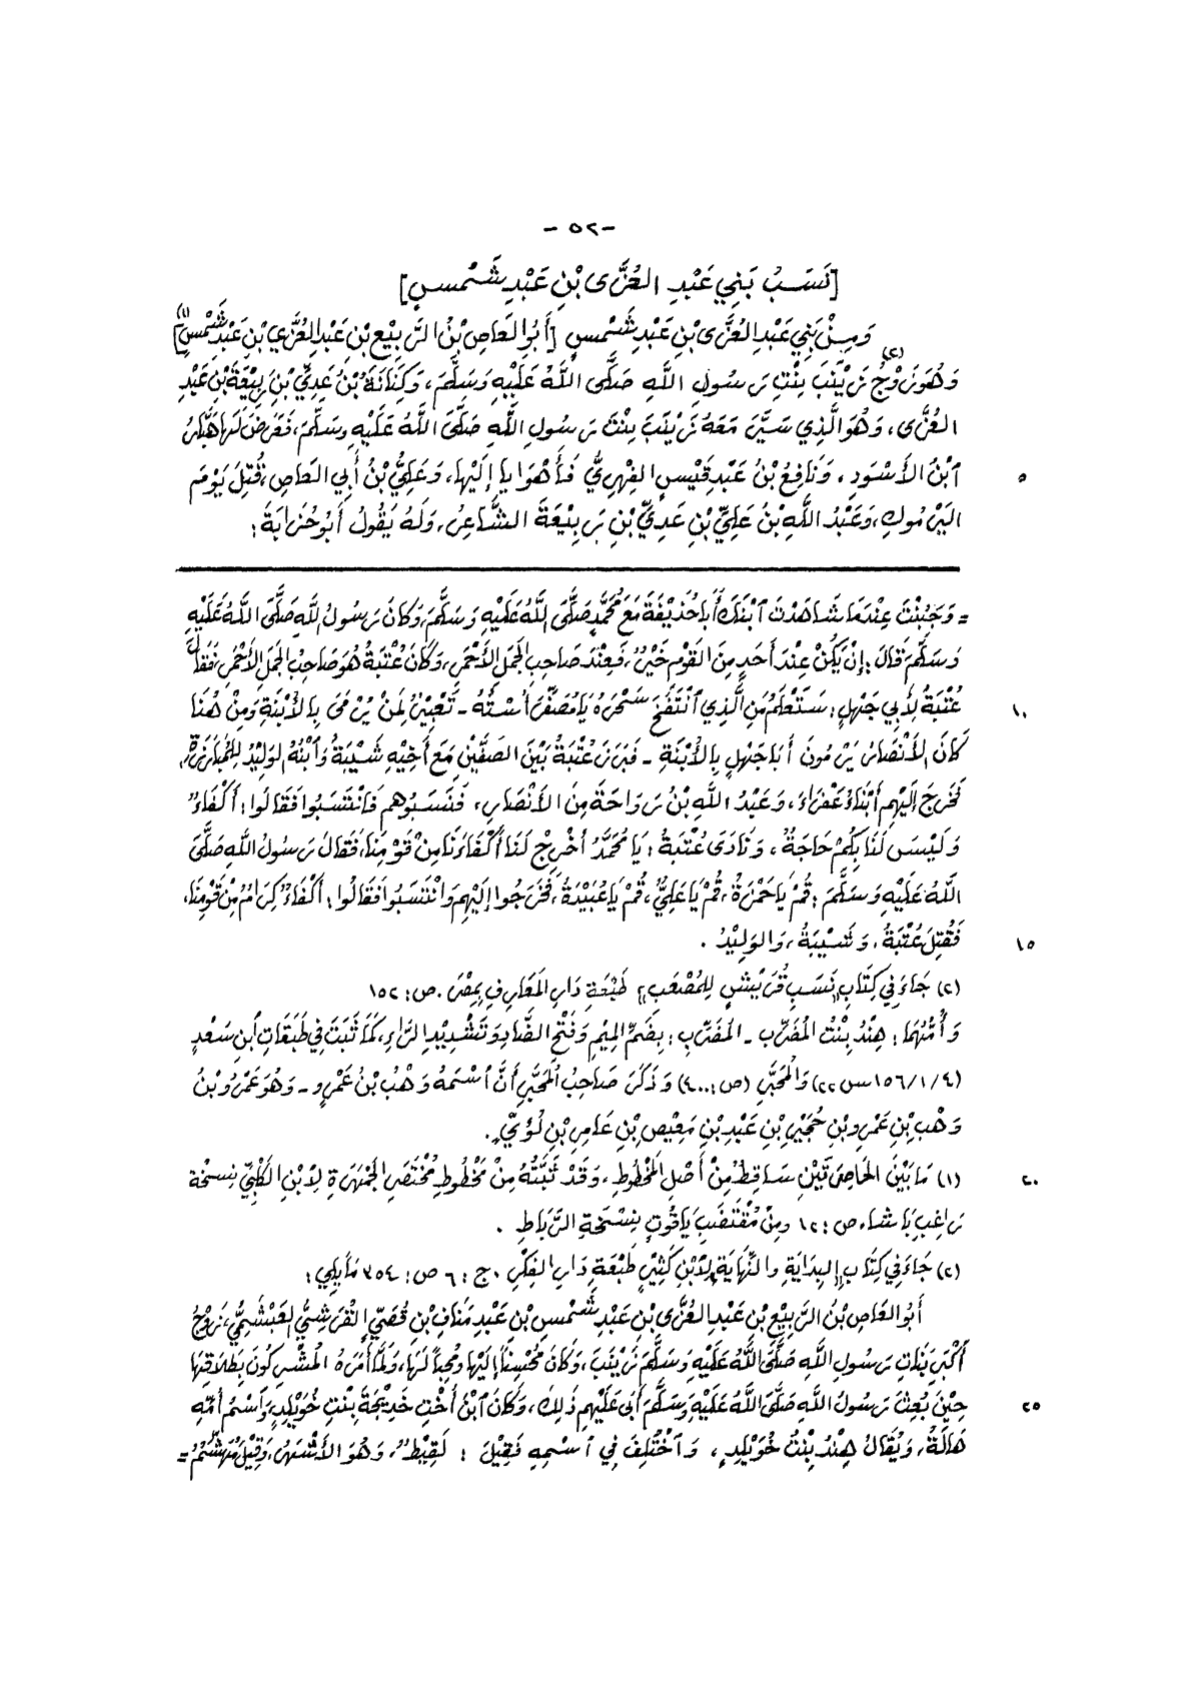 - ٥٢ -
[نَسَبُ بَنِي عَبْدِ العُزَّى بْنِ عَبْدِ شَمْسٍ]
وَمِنْ بَنِي عَبْدِ العُزَّى بْنِ عَبْدِ شَمْسٍ [أَبُو العَاصِ بْنُ الرَّبِيْعِ بْنِ عَبْدِ العُزَّى بْنِ عَبْدِ شَمْسٍ](١)
وَهُوَ زَوْجُ زَيْنَبَ(٢) بِنْتِ رَسُولِ اللَّهِ صَلَّى اللَّهُ عَلَيْهِ وَسَلَّمَ، وَكِنَانَةُ بْنُ عَدِيِّ بْنِ رَبِيْعَةَ بْنِ عَبْدِ
العُزَّى، وَهُوَ الَّذِي سَيَّرَ مَعَهُ زَيْنَبَ بِنْتَ رَسُولِ اللَّهِ صَلَّى اللَّهُ عَلَيْهِ وَسَلَّمَ، فَعَرَضَ لَهَا هَبَّارُ
٥ ٱبْنُ الأَسْوَدِ، وَنَافِعُ بْنُ عَبْدِ قَيْسٍ الفِهْرِيُّ فَأَهْوَيا إِلَيْهَا، وَعَلِيُّ بْنُ أَبِي العَاصِ، قُتِلَ يَوْمَ
اليَرْمُوكِ، وَعَبْدُ اللَّهِ بْنُ عَلِيِّ بْنِ عَدِيِّ بْنِ رَبِيْعَةَ الشَّاعِرُ، وَلَهُ يَقُولُ أَبُو حُزَابَةَ:
= وَجَبُنْتَ عِنْدَمَا شَاهَدْتَ ٱبْنَكَ أَبَا حُذَيْفَةَ مَعَ مُحَمَّدٍ صَلَّى اللَّهُ عَلَيْهِ وَسَلَّمَ، وَكَانَ رَسُولُ اللَّهِ صَلَّى اللَّهُ عَلَيْهِ
وَسَلَّمَ قَالَ: إِنْ يَكُنْ عِنْدَ أَحَدٍ مِنَ القَوْمِ خَيْرٌ، فَعِنْدَ صَاحِبِ الجَمَلِ الأَحْمَرِ، وَكَانَ عُتْبَةُ هُوَ صَاحِبُ الجَمَلِ الأَحْمَرِ، فَقَالَ
١٠ عُتْبَةُ لِأَبِي جَهْلٍ: سَتَعْلَمُ مَنِ الَّذِي ٱنْتَفَخَ سَحْرُهُ يَا مُصَفِّرَ ٱسْتِهِ - تَعْبِيْرٌ لِمَنْ يُرْمَى بِالأُبْنَةِ وَمِنْ هُنَا
كَانَ الأَنْصَارُ يَرْمُونَ أَبَا جَهْلٍ بِالأُبْنَةِ - فَبَرَزَ عُتْبَةُ بَيْنَ الصَّفَّيْنِ مَعَ أَخِيْهِ شَيْبَةَ وَٱبْنِهِ الوَلِيْدِ لِلْمُبَارَزَةِ،
فَخَرَجَ إِلَيْهِم أَبْنَاءُ عَفْرَاءَ، وَعَبْدُ اللَّهِ بْنُ رَوَاحَةَ مِنَ الأَنْصَارِ، فَنَسَبُوهُم فَٱنْتَسَبُوا فَقَالُوا: أَكْفَاءٌ
وَلَيْسَ لَنَا بِكُمْ حَاجَةٌ، وَنَادَى عُتْبَةُ: يَا مُحَمَّدُ أَخْرِجْ لَنَا أَكْفَاءَنَا مِنْ قَوْمِنَا، فَقَالَ رَسُولُ اللَّهِ صَلَّى
اللَّهُ عَلَيْهِ وَسَلَّمَ: قُمْ يَا حَمْزَةُ، قُمْ يَا عَلِيُّ، قُمْ يَا عُبَيْدَةُ، فَخَرَجُوا إِلَيْهِم وَانْتَسَبُوا فَقَالُوا: أَكْفَاءٌ كِرَامٌ مِنْ قَوْمِنَا،
١٥ فَقُتِلَ عُتْبَةُ، وَشَيْبَةُ، وَالوَلِيْدُ.
(٢) جَاءَ فِي كِتَابِ «نَسَبِ قُرَيْشٍ لِلْمُصْعَبِ» طَبْعَةِ دَارِ المَعَارِفِ بِمِصْرَ. ص: ١٥٢
وَأُمُّهُمَا: هِنْدُ بِنْتُ المُضَرِّبِ - المُضَرِّبِ: بِضَمِّ المِيْمِ وَفَتْحِ الضَّادِ وَتَشْدِيْدِ الرَّاءِ، كَمَا ثَبَتَ فِي طَبَقَاتِ ٱبْنِ سَعْدٍ
(١٥٦/١/٤ س ٢٢) وَالمُحَبَّرِ (ص: ٤٠٠) وَذَكَرَ صَاحِبُ المُحَبَّرِ أَنَّ ٱسْمَهُ وَهْبُ بْنُ عَمْرٍو - وَهُوَ عَمْرُو بْنُ
وَهْبِ بْنِ عَمْرِو بْنِ حُجَيْرِ بْنِ عَبْدِ بْنِ مَعِيْصِ بْنِ عَامِرِ بْنِ لُؤَيٍّ.
٢٠ (١) مَا بَيْنَ الحَاصِرَتَيْنِ سَاقِطٌ مِنْ أَصْلِ المَخْطُوطِ، وَقَدْ ثَبَّتُّهُ مِنْ مَخْطُوطِ مُخْتَصَرِ الجَمْهَرَةِ لِابْنِ الكَلْبِيِّ نِسْخَةِ
رَاغِبِ بَاشَا، ص: ١٢ وَمِنْ مُقْتَضَبِ يَاقُوتٍ نِسْخَةِ الرَّبَاطِ.
(٢) جَاءَ فِي كِتَابِ «البِدَايَةِ وَالنِّهَايَةِ لِابْنِ كَثِيْرٍ» طَبْعَةِ دَارِ الفِكْرِ. ج: ٦ ص: ٣٥٤ مَا يَلِي:
أَبُو العَاصِ بْنُ الرَّبِيْعِ بْنِ عَبْدِ العُزَّى بْنِ عَبْدِ شَمْسِ بْنِ عَبْدِ مَنَافِ بْنِ قُصَيٍّ القُرَشِيُّ العَبْشَمِيُّ، زَوْجُ
أَكْبَرِ بَنَاتِ رَسُولِ اللَّهِ صَلَّى اللَّهُ عَلَيْهِ وَسَلَّمَ زَيْنَبَ، وَكَانَ مُحْسِناً إِلَيْهَا وَمُحِبّاً لَهَا، وَلَمَّا أَمَرَهُ المُشْرِكُونَ بِطَلَاقِهَا
٢٥ حِيْنَ بُعِثَ رَسُولُ اللَّهِ صَلَّى اللَّهُ عَلَيْهِ وَسَلَّمَ أَبَى عَلَيْهِم ذَلِكَ، وَكَانَ ٱبْنَ أُخْتِ خَدِيْجَةَ بِنْتِ خُوَيْلِدٍ، وَٱسْمُ أُمِّهِ
هَالَةُ، وَيُقَالُ هِنْدُ بِنْتُ خُوَيْلِدٍ، وَٱخْتُلِفَ فِي ٱسْمِهِ فَقِيْلَ: لَقِيْطٌ، وَهُوَ الأَشْهَرُ، وَقِيْلَ مُهَشِّمٌ =